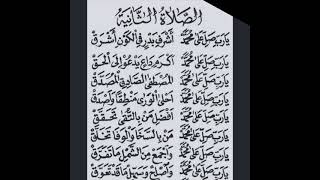 الصَّلَاةُ الثَّانِيَةُ
يَارَبِّ صَلِّ عَلَى مُحَمَّدْ أَشْرَفِ بَدْرٍ فِي الْكَوْنِ أَشْرَقْ
يَارَبِّ صَلِّ عَلَى مُحَمَّدْ أَكْرَمِ دَاعٍ يَدْعُو إِلَى الْحَقْ
يَارَبِّ صَلِّ عَلَى مُحَمَّدْ الْمُصْطَفَى الصَّادِقِ الْمُصَدَّقْ
يَارَبِّ صَلِّ عَلَى مُحَمَّدْ أَحْلَى الْوَرَى مَنْطِقًا وَأَصْدَقْ
يَارَبِّ صَلِّ عَلَى مُحَمَّدْ أَفْضَلِ مَنْ بِالتُّقَى تَحَقَّقْ
يَارَبِّ صَلِّ عَلَى مُحَمَّدْ مَنْ بِالسَّخَا وَالْوَفَا تَخَلَّقْ
يَارَبِّ صَلِّ عَلَى مُحَمَّدْ وَاجْمَعْ مِنَ الشَّمْلِ مَا تَفَرَّقْ
يَارَبِّ صَلِّ عَلَى مُحَمَّدْ وَاصْلِحْ وَسَهِّلْ مَا قَدْ تَعَوَّقْ